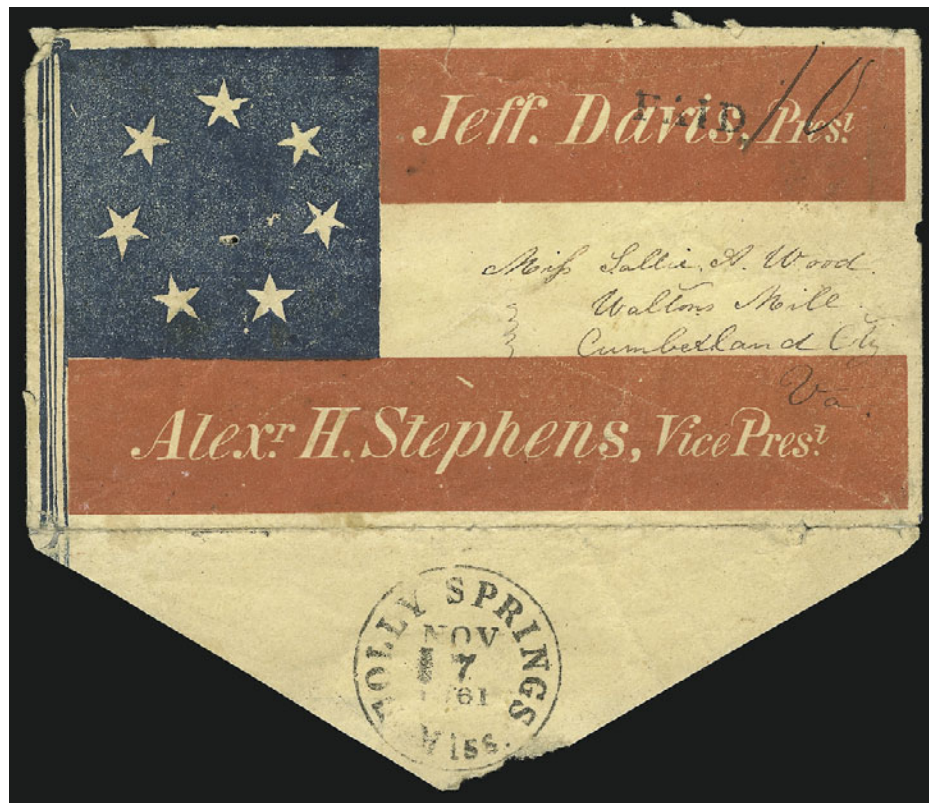 Jeff. Davis, Prest
PAID 10
Miss Sallie A. Wood.
Waltons Mill
Cumberland Cty
Va.
Alexr. H. Stephens, Vice Prest
HOLLY SPRINGS
NOV
17
1861
Miss.